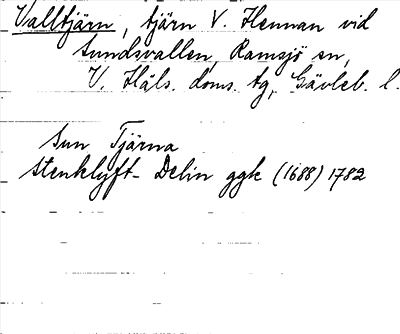 Valltjärn, tjärn V. Hennan vid
Sundsvallen, Ramsjö sn,
V. Häls. doms. tg, Gävleb. l.
Sun Tjärna
Stenklyft- Delin ggk (1688) 1782